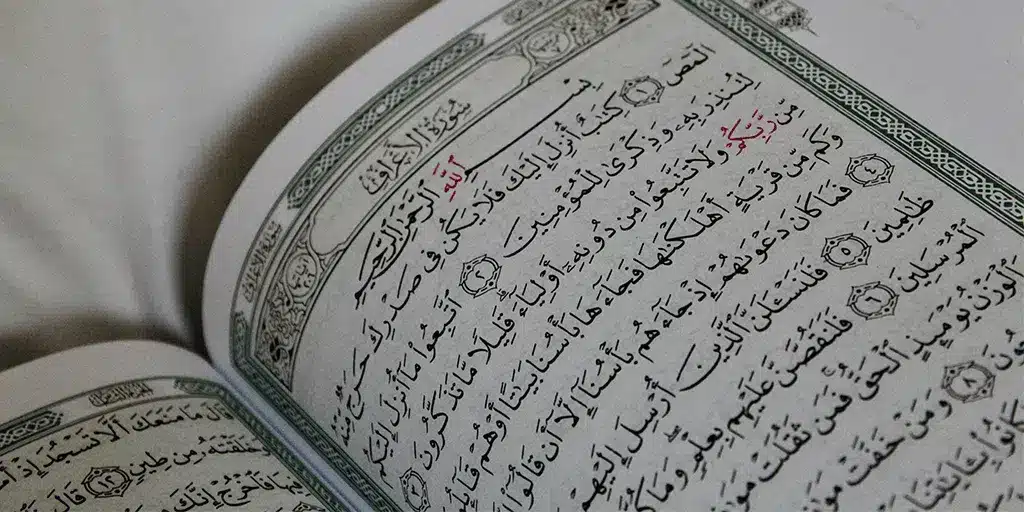 سُورَةُ الأَعْرَافِ
بِسْمِ ٱللَّهِ ٱلرَّحْمَٰنِ ٱلرَّحِيمِ
الٓمٓصٓ ١ كِتَٰبٌ أُنزِلَ إِلَيْكَ فَلَا يَكُن فِي صَدْرِكَ حَرَجٌ مِّنْهُ
لِتُنذِرَ بِهِۦ وَذِكْرَىٰ لِلْمُؤْمِنِينَ ٢ ٱتَّبِعُوا۟ مَآ أُنزِلَ إِلَيْكُم
مِّن رَّبِّكُمْ وَلَا تَتَّبِعُوا۟ مِن دُونِهِۦٓ أَوْلِيَآءَ قَلِيلًا مَّا تَذَكَّرُونَ ٣
وَكَم مِّن قَرْيَةٍ أَهْلَكْنَٰهَا فَجَآءَهَا بَأْسُنَا بَيَٰتًا أَوْ هُمْ
٤ فَمَا كَانَ دَعْوَىٰهُمْ إِذْ جَآءَهُم بَأْسُنَآ إِلَّآ أَن قَالُوٓا۟
ظَٰلِمِينَ ٥ فَلَنَسْـَٔلَنَّ ٱلَّذِينَ أُرْسِلَ إِلَيْهِمْ
ٱلْمُرْسَلِينَ ٦ فَلَنَقُصَّنَّ عَلَيْهِم بِعِلْمٍ وَمَا كُنَّا
وَٱلْوَزْنُ يَوْمَئِذٍ ٱلْحَقُّ فَمَن ثَقُلَتْ
٨ وَمَنْ خَفَّتْ
كَانُوا۟ بِـَٔايَٰتِنَا
قَالَ مَا مَنَعَكَ أَلَّا تَسْجُدَ إِذْ
خَلَقْتَهُۥ مِن طِينٍ ١٢ قَالَ
فَٱخْرُجْ إِنَّكَ